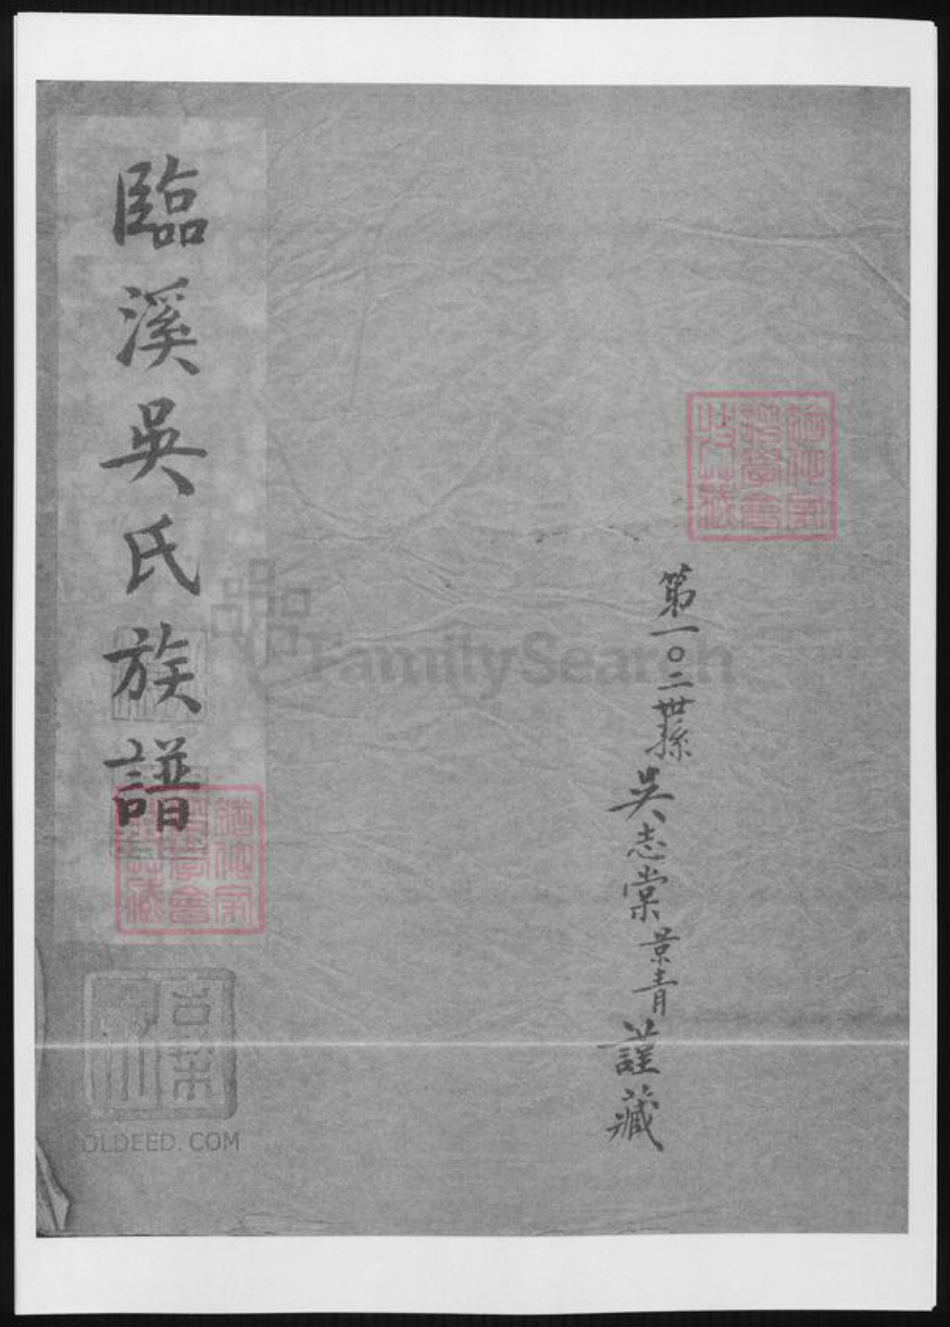 第一〇二世孫
吳志棠景青謹藏
臨溪吳氏族譜
FamilySearch
OLDEED.COM